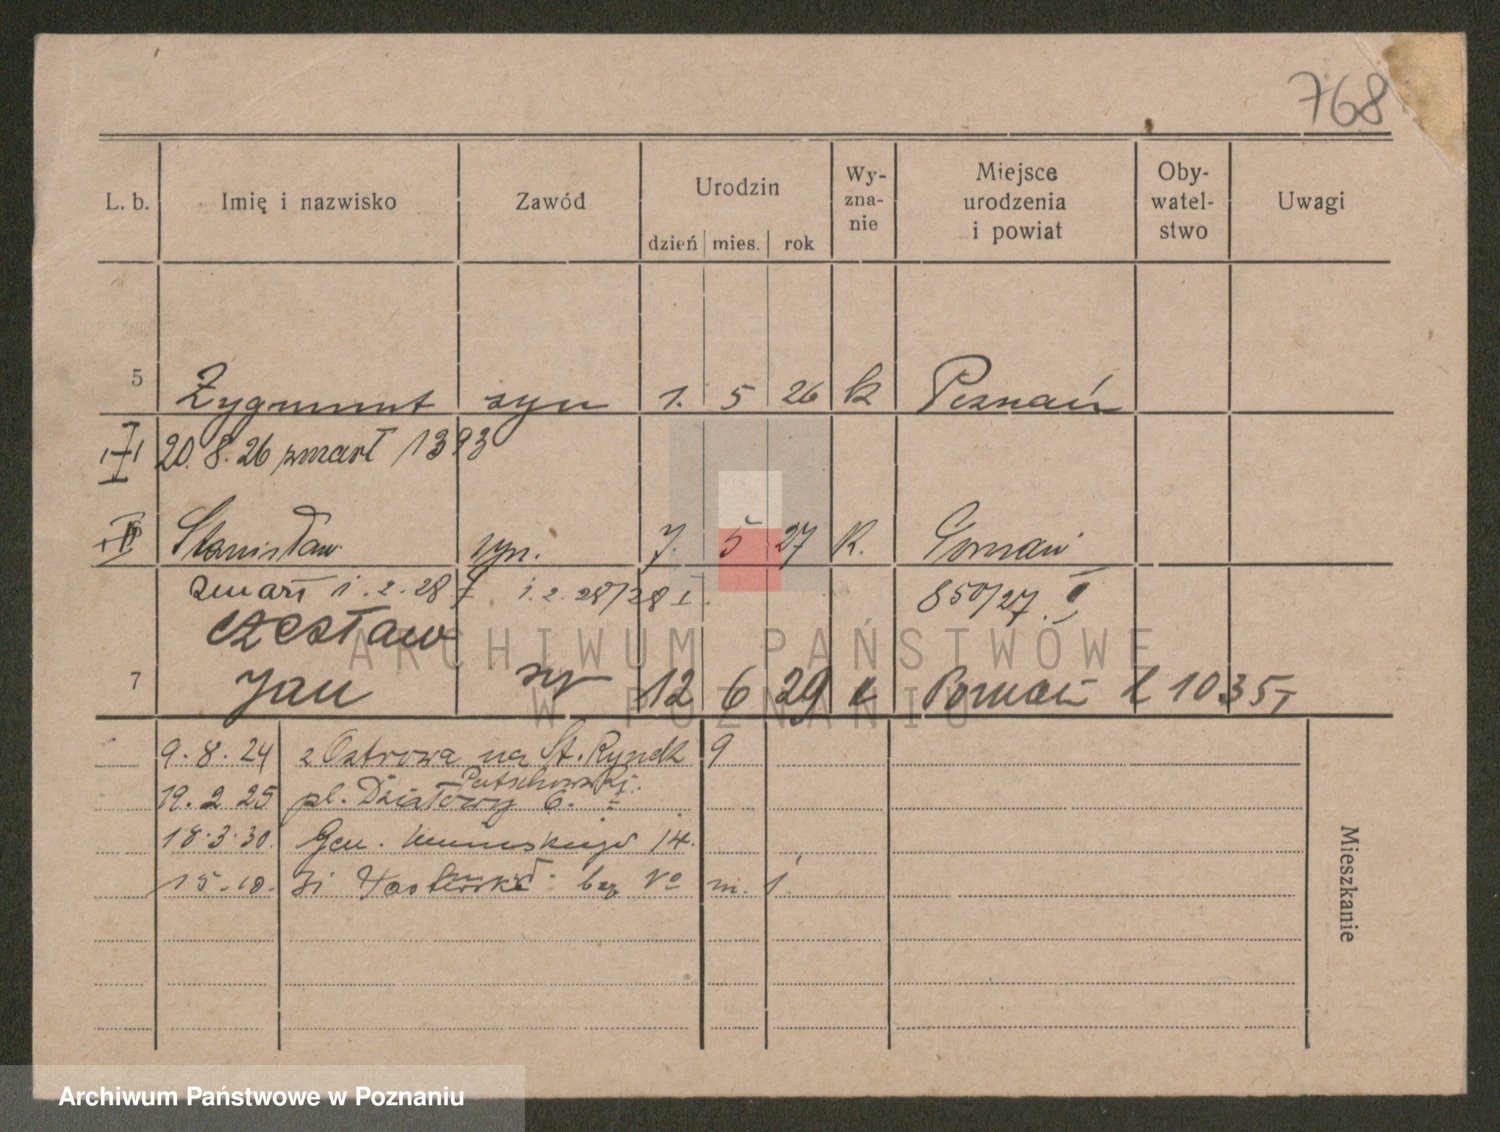 768
L. b. Imię i nazwisko Zawód Urodzin Wy-zna-nie Miejsce urodzenia i powiat Oby-watel-stwo Uwagi
dzień mies. rok
5 Zygmunt syn 1. 5 26 k Poznań
20. 8. 26 zmarł 1393
Stanisław syn. 7. 5 27 K. Poznań
zmarł 1. 2. 28 1. 2. 28/28 I. 850/27. I
Czesław
7 Jan syn 12 6 29 k Poznań 1035
ARCHIWUM PAŃSTWOWE
W POZNANIU
9. 8. 24 z Ostrowa na St. Rynek 9
19. 2. 25 pl. Działowy 6.
18. 3. 30. Gen. 14.
15. 10. bez No m. 1
Mieszkanie
Archiwum Państwowe w Poznaniu